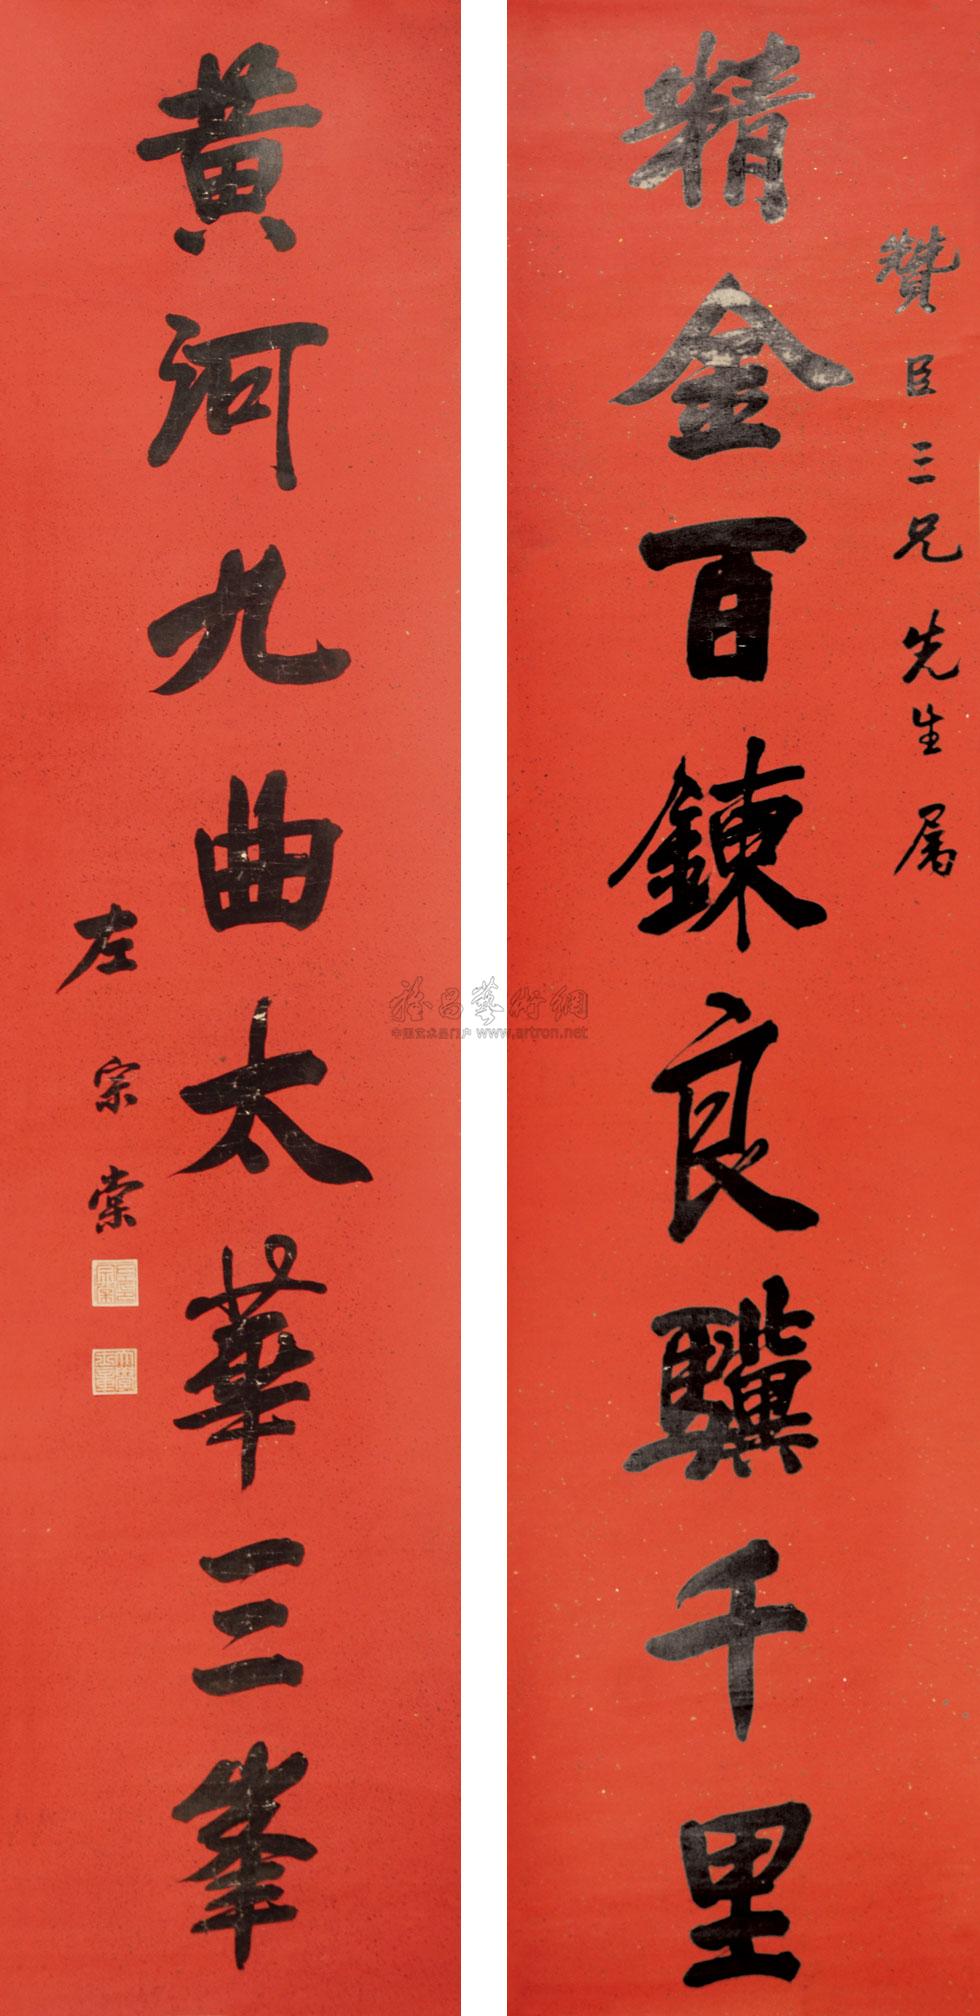 贊臣三兄先生属
精金百鍊良驥千里
黃河九曲太華三峯
左宗棠
雅昌藝術網
中国艺术品门户 www.artron.net